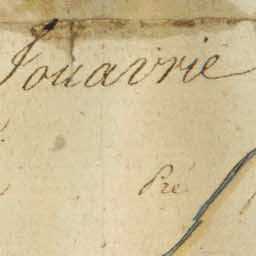 Jouavrie
Pré